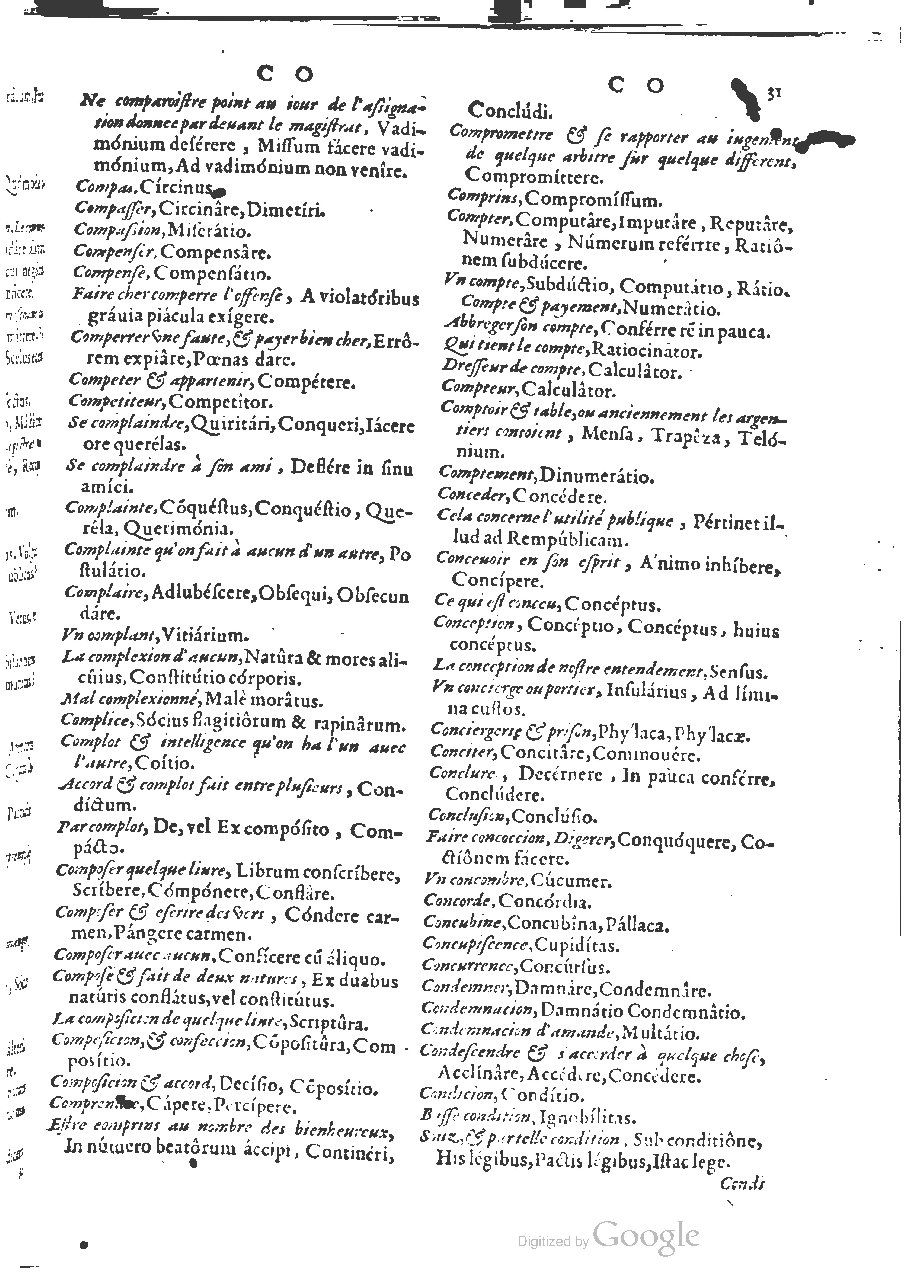 C O
Ne comparoiſtre point au iour de l'aſsigna-
tion donnee par deuant le magiſtrat, Vadi-
mónium deſérere, Miſſum fácere vadi-
mónium, Ad vadimónium non venîre.
Compas, Círcinus
Compaſſer, Circinâre, Dimetíri.
Compaſsion, Miſerátio.
Compenſer, Compensâre.
Compenſe, Compensátio.
Faire cher comperre l'offenſe, A violatóribus
gráuia piácula exígere.
Comperrer vne faute, & payer bien cher, Errô-
rem expiâre, Pœnas dare.
Competer & appartenir, Compétere.
Competiteur, Competîtor.
Se complaindre, Quiritári, Conqueri, Iácere
ore querélas.
Se complaindre à ſon ami, Deflére in ſinu
amíci.
Complainte, Cōquéſtus, Conquéſtio, Que-
réla, Querimónia.
Complainte qu'on fait à aucun d'un autre, Po
ſtulátio.
Complaire, Adlubéſcere, Obſequi, Obſecun
dáre.
Vn complant, Vitiárium.
La complexion d'aucun, Natûra & mores ali-
cûius, Conſtitútio córporis.
Mal complexionné, Malè morâtus.
Complice, Sócius flagitiôrum & rapinârum.
Complot & intelligence qu'on ha l'un auec
l'autre, Coítio.
Accord & complot fait entre pluſieurs, Con-
díctum.
Par complot, De, vel Ex compóſito, Com-
pácto.
Compoſer quelque liure, Librum conſcríbere,
Scríbere, Cōmpónere, Conflâre.
Compoſer & eſcrire des vers, Cóndere car-
men, Pángere carmen.
Compoſer auec aucun, Confícere cū áliquo.
Compoſé & fait de deux natures, Ex duabus
natúris conflátus, vel conſtitútus.
La compoſition de quelque liure, Scriptûra.
Compoſicion, & confeccion, Cōpoſitûra, Com-
poſítio.
Compoſicion & accord, Decíſio, Cōpoſítio.
Comprendre, Cápere, Percípere.
Eſtre comprins au nombre des bienheureux,
In número beatôrum áccipi, Continéri,
C O
31
Conclúdi.
Compromettre & ſe rapporter au iugement
de quelque arbitre ſur quelque different,
Compromíttere.
Comprins, Compromíſſum.
Compter, Computâre, Imputâre, Reputâre,
Numerâre, Númerum reférre, Ratiô-
nem ſubdúcere.
Vn compte, Subdúctio, Computátio, Rátio.
Compte & payement, Numerâtio.
Abbreger ſon compte, Conférre rē in pauca.
Qui tient le compte, Ratiocinátor.
Dreſſeur de compte, Calculâtor.
Compteur, Calculâtor.
Comptoir & table, ou anciennement les argen-
tiers contoient, Menſa, Trapêza, Teló-
nium.
Comptement, Dinumerátio.
Conceder, Concédere.
Cela concerne l'utilité publique, Pértinet il-
lud ad Rempúblicam.
Conceuoir en ſon eſprit, A'nimo inhíbere,
Concípere.
Ce qui eſt conceu, Concéptus.
Conception, Concéptio, Concéptus, huius
concéptus.
La conception de noſtre entendement, Senſus.
Vn concierge ou portier, Inſulárius, Ad lími-
na cuſtos.
Conciergerie & priſon, Phy'laca, Phy'lacæ.
Conciter, Concitâre, Commouére.
Conclure, Decérnere, In pauca conférre,
Conclúdere.
Concluſion, Conclúſio.
Faire concoccion, Digerer, Conquóquere, Co-
ctiônem fácere.
Vn concombre, Cúcumer.
Concorde, Concórdia.
Concubine, Concubîna, Pállaca.
Concupiſcence, Cupidítas.
Concurrence, Concúrſus.
Condemner, Damnâre, Condemnâre.
Condemnacion, Damnátio Condemnâtio.
Condemnacion d'amande, Multátio.
Condeſcendre & s'accorder à quelque choſe,
Acclinâre, Accédere, Concédere.
Condicion, Condítio.
Baſſe condition, Ignobílitas.
Souz, & par telle condition, Sub conditiône,
His légibus, Pactis légibus, Iſtac lege.
Condi
Digitized by Google